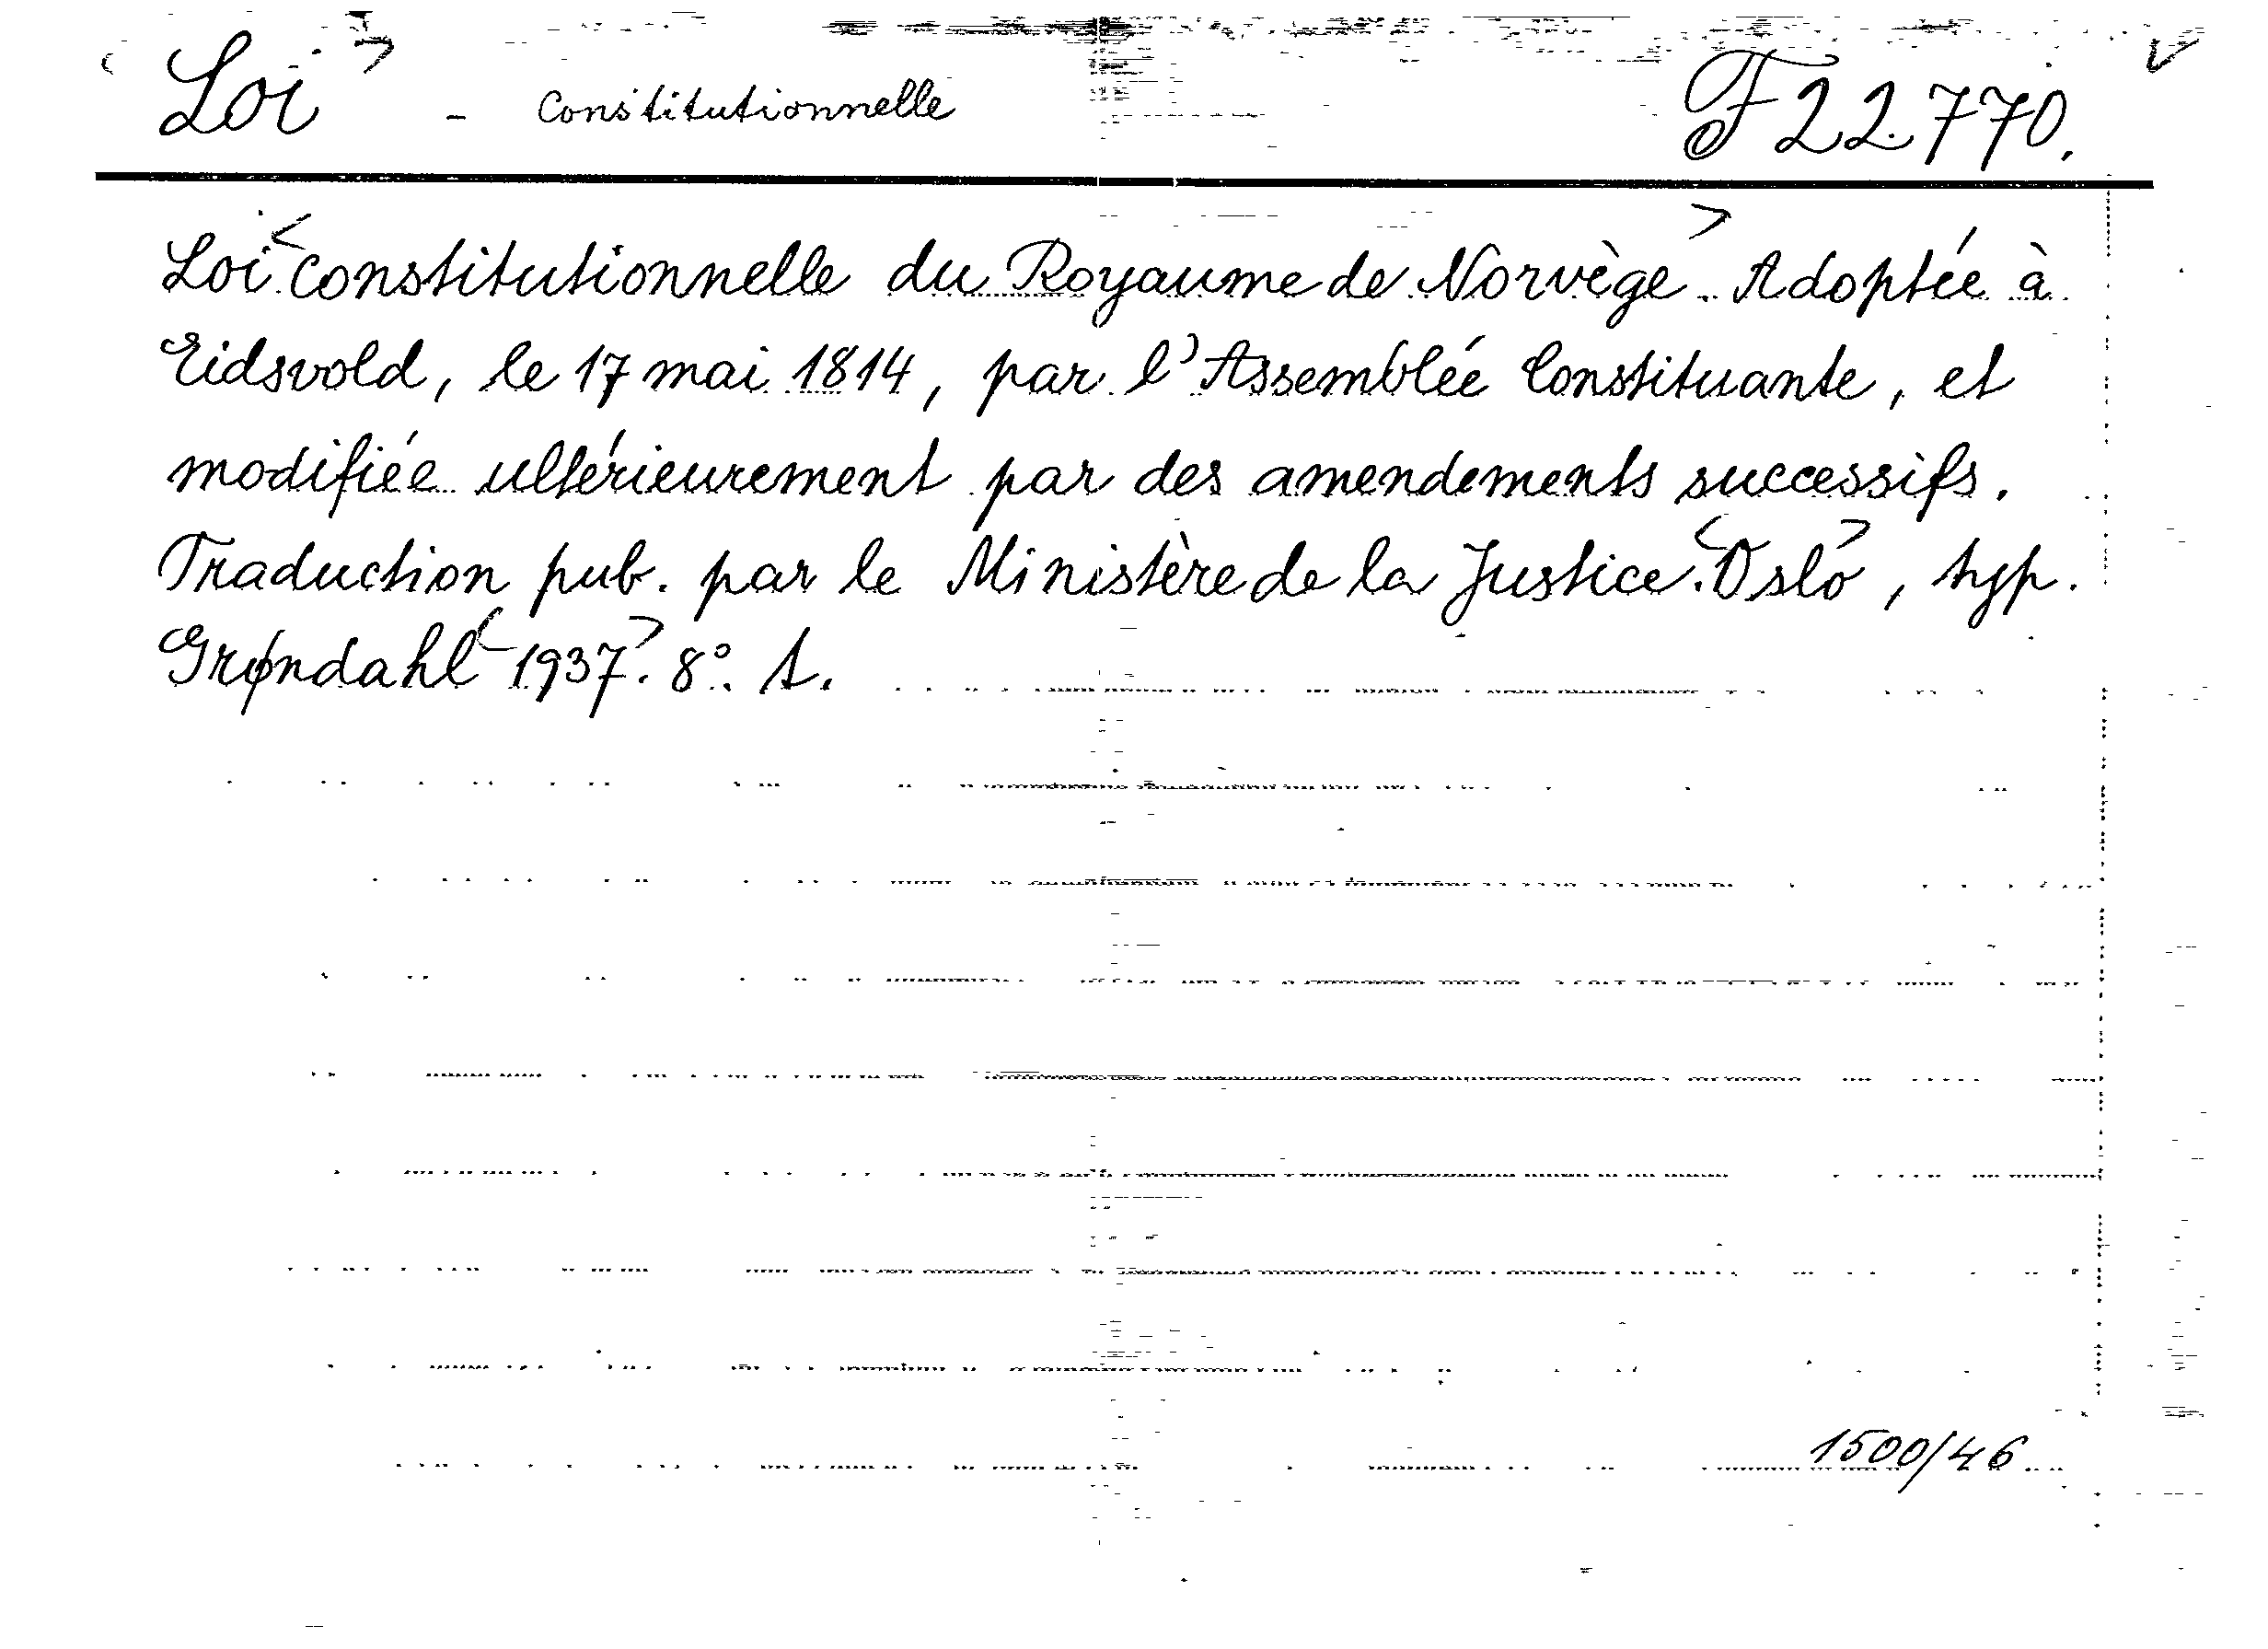 Loi - Constitutionnelle F 22.770.
Loi constitutionnelle du Royaume de Norvège. Adoptée à
Eidsvold, le 17 mai 1814, par l'Assemblée Constituante, et
modifiée ultérieurement par des amendements successifs.
Traduction pub. par le Ministère de la Justice. Oslo, typ.
Grøndahl 1937. 8°. A.
1500/46